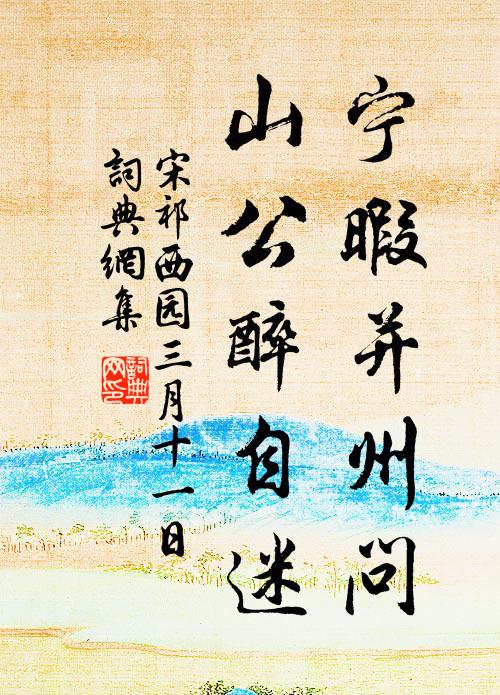 宁暇并州问
山公醉自迷
宋祁西园三月十一日
詞典網集
詞典网印